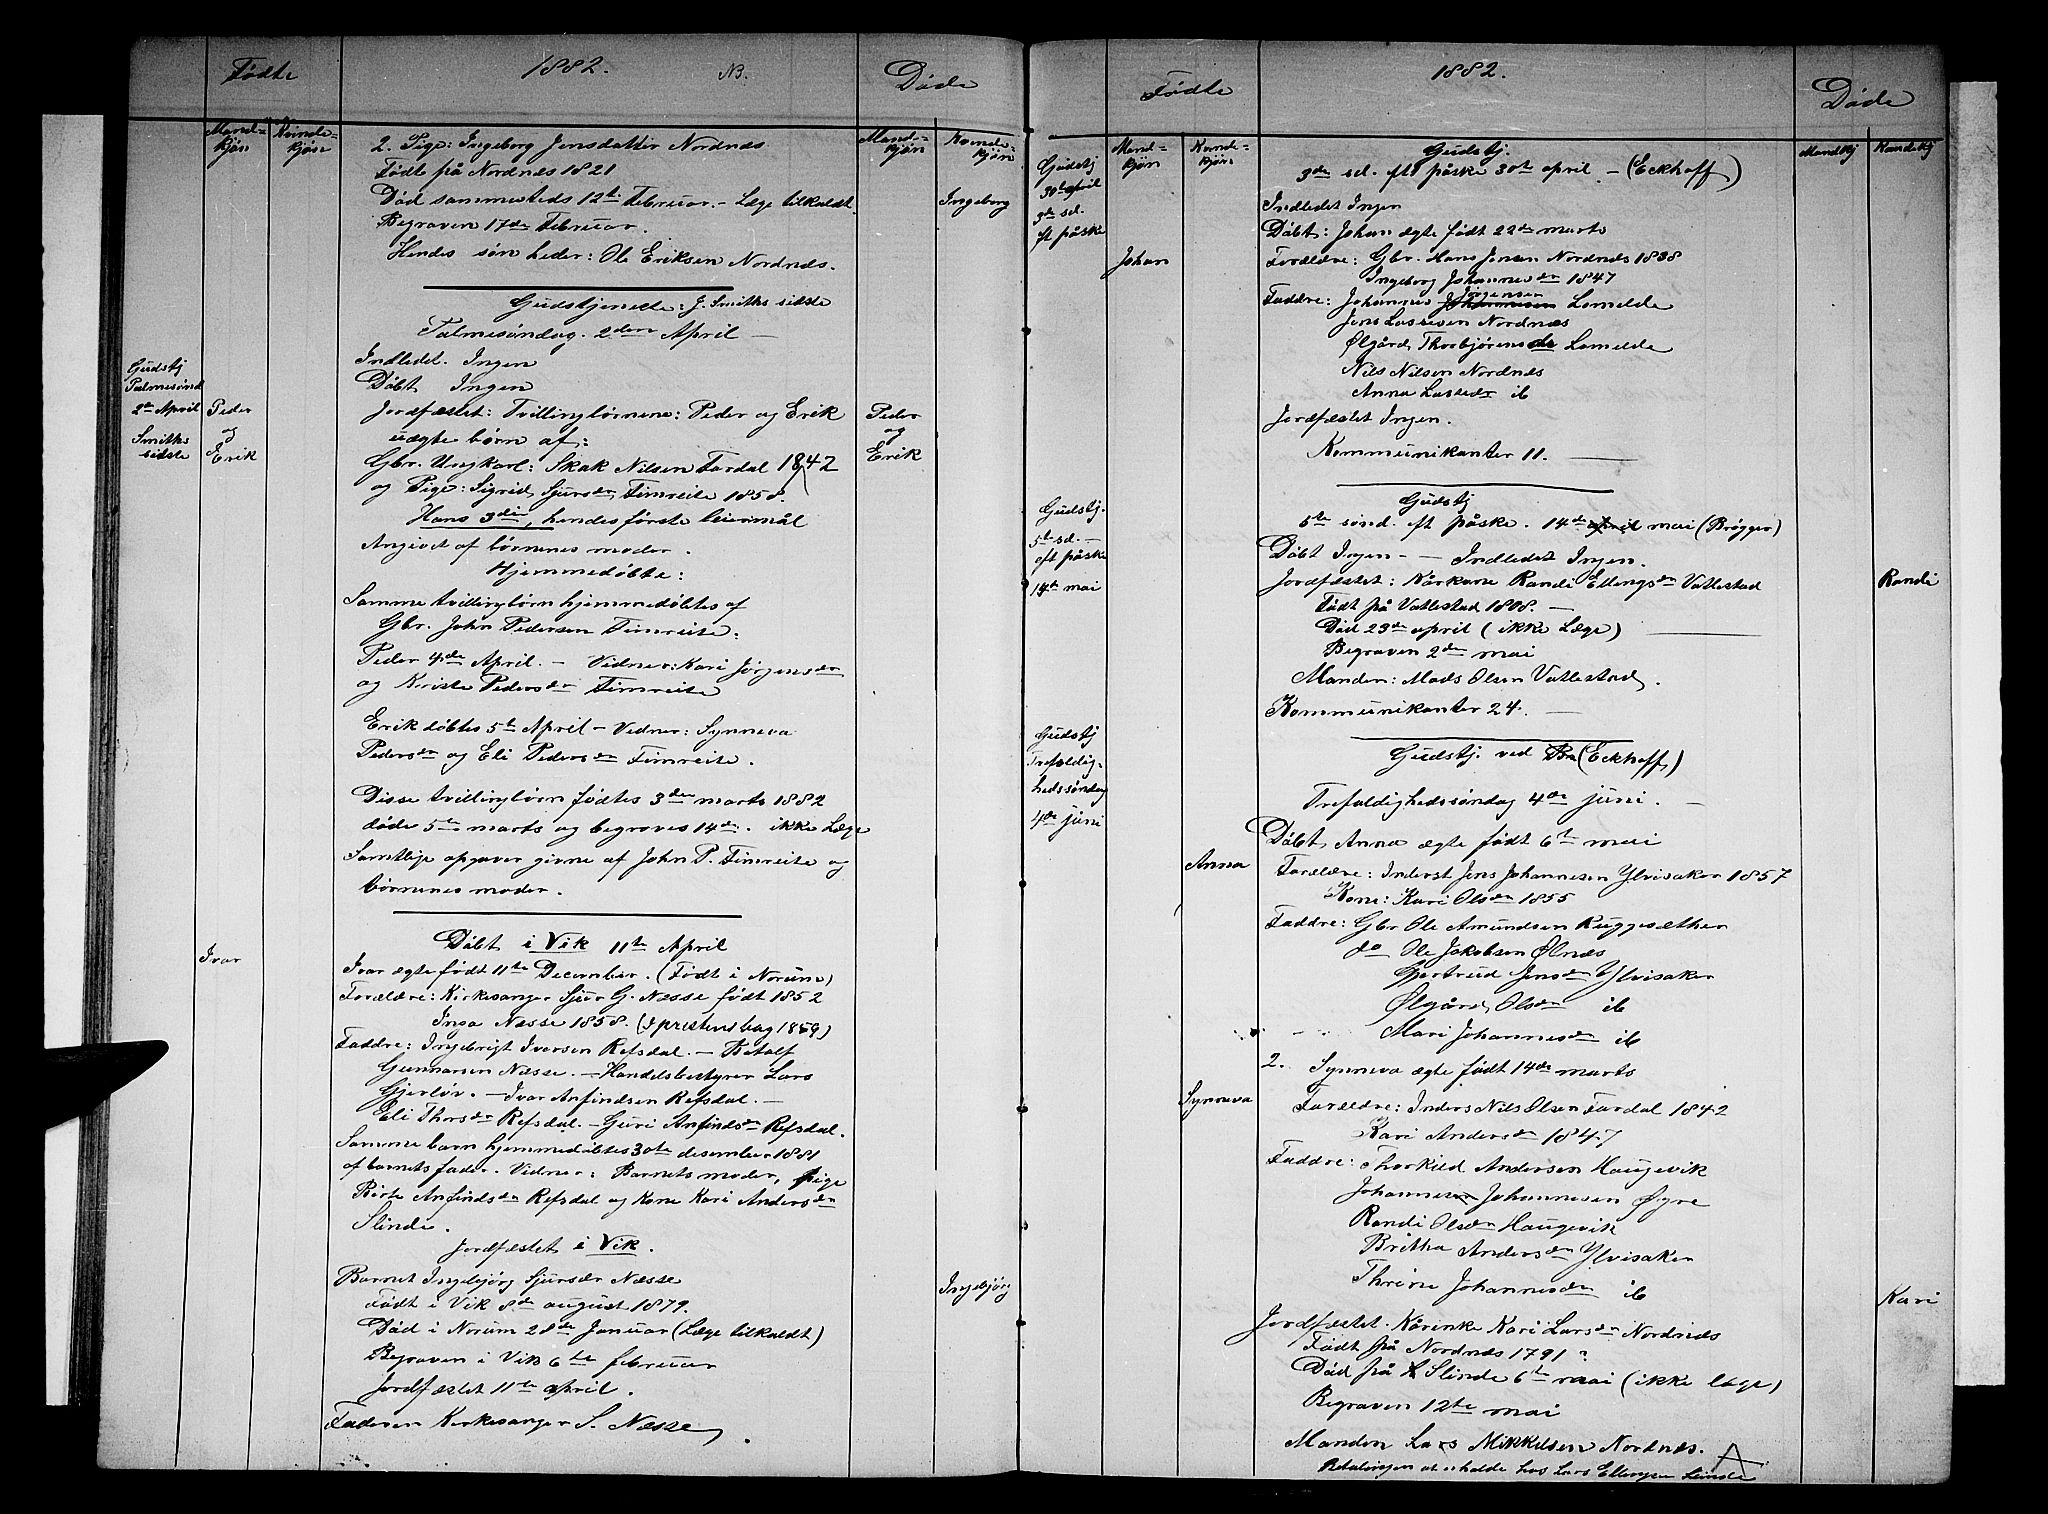 Fødte
1882.
NB.
Døde
Mand-
kjøn
Kvinde-
kjøn
Mand-
kjøn
Kvinde-
kjøn
2. Pige: Ingeborg Jensdatter Nordnæs
Født på Nordnæs 1821
Død sammesteds 12te Februar. - Læge tilkaldt.
Ingeborg
Begraven 17de Februar.
Hendes søn heder: Ole Eriksen Nordnæs.
Gudstjeneste: J. Smiths sidste
Palmesøndag. 2den April -
Gudstj
Palmesønd
2den April
Smiths
sidste
Indledet. Ingen
Døbt Ingen
Peder
og
Erik
Jordfæstet: Tvillingbørnene: Peder og Erik
uægte børn af:
Peder
og
Erik
Gbr. Ungkarl: Skak Nilsen Fardal 1842
og Pige: Sigrid Sjursdr Fimreite 1858.
Hans 3die, hendes første leiermål
Angivet af børnenes moder.
Hjemmedøbte:
Samme tvillingbørn hjemmedøbtes af
Gbr. John Pedersen Fimreite:
Peder 4de April. - Vidner: Kari Jørgensdr
og Kriste Pedersdr Fimreite
Erik døbtes 5te April - Vidner: Synneva
Pedersdr og Eli Pedersdr Fimreite.
Disse tvillingbørn fødtes 3die marts 1882
døde 5te marts og begroves 14de. ikke Læge
Samtlige opgaver givne af John P. Fimreite og
børnenes moder.
Døbt i Vik 11te April
Ivar
Ivar ægte født 11te December. (Født i Norum)
Forældre: Kirkesanger Sjur G. Næsse født 1852
Inga Næsse 1858. (I prestens bog 1859)
Faddre: Ingebrigt Iversen Refsdal. - Botolf
Gunnarsen Næsse. - Handelsbestyrer Lars
Gjerløv. - Ivar Anfindsen Refsdal. -
Eli Thorsdr Refsdal. - Guri Anfindsdr Refsdal.
Samme barn hjemmedøbtes 30te desember 1881
af barnets fader. Vidner: Barnets moder, pige
Birte Anfindsdr Refsdal og Kone Kari Andersdr
Slinde.
Jordfæstet i Vik.
Barnet Ingebjørg Sjursdr Næsse
Ingebjørg
Født i Vik 8de august 1879.
Død i Norum 28de Januar (Læge tilkaldt)
Begraven i Vik 6te februar
Jordfæstet 11te april.
Faderen Kirkesanger S. Næsse
Fødte
1882.
Døde
Mand-
kjøn
Kvinde-
kjøn
Mandkj
Kvindekj
Gudstj
30te april
3de sd.
eft påske
Gudstj.
3de sd. eft påske 30te april - (Eckhoff)
Indledet Ingen
Johan
Døbt: Johan ægte født 22de marts
Forældre: Gbr. Hans Jensen Nordnæs 1838
Ingeborg Johannesdr 1847
Faddre: Johannes Johannesen Jørgensen Lomelde
Jens Lassesen Nordnæs
Ølgård Thorbjørensdr Lomelde
Nils Nilsen Nordnæs
Anna Lassedr ib
Jordfæstet Ingen.
Kommunikanter 11.
Gudstj.
5te sd. -
eft påske
14de mai
Gudstj
5te sønd. eft påske. 14de april mai (Brøgger)
Døbt Ingen - - Indledet Ingen.
Jordfæstet: Kårkone Randi Ellingsdr Vallestad
Randi
Født på Vallestad 1808. -
Død 23de april (ikke Læge)
Begraven 2de mai
Manden: Mads Olsen Vallestad.
Kommunikanter 24. -
Gudstj
Trefoldig-
hedssøndag
4de juni
Gudstj. ved (Eckhoff)
Trefoldighedssøndag 4de juni. -
Anna
Døbt Anna ægte født 6te mai
Forældre: Inderst Jens Johannesen Ylvisaker 1857
Kone: Kari Olsdr 1855
Faddre: Gbr Ole Amundsen Ruggesæther
do Ole Jakobsen Ølnæs
Gjertrud Jensdr Ylvisaker
Ølgård Olsdr ib
Mari Johannesdr ib
Synneva
2. Synneva ægte født 14de marts
Forældre: Inders Nils Olsen Fardal 1842
Kari Andersdr 1847
Faddre: Thorkild Andersen Haugevik
Johannes Johannesen Øyre
Randi Olsdr Haugevik
Britha Andersdr Ylvisaker
Thrine Johannesdr ib
Jordfæstet. Kårenke Kari Larsdr Nordnæs
Kari
Født på Nordnæs 1791?
Død på Slinde 6te mai (ikke læge)
Begraven 12te mai
Manden Lars Mikkelsen Nordnæs.
Betalingen at erholde hos Lars Ellingsen Slinde